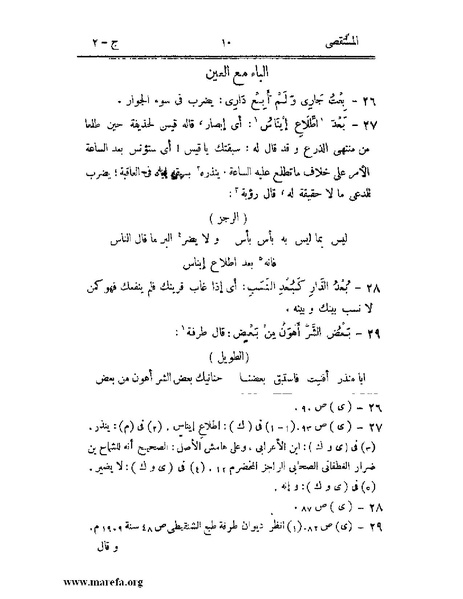 المستقصى ١٠ ج - ٢
الباء مع العين
٢٦ - بِعْتُ جَارِى وَلَمْ أَبِعْ دَارِى: يضرب فى سوء الجوار .
٢٧ - بَعْدَ اطِّلَاعِ إِينَاسٌ: أى إبصار، قاله قيس لحذيفة حين طلعا
من منتهى الذرع و قد قال له: سبقتك يا قيس! أى ستؤنس بعد الساعة
الأمر على خلاف ما تطلع عليه الساعة. ينذره فى العاقبة؛ يضرب
للمدعى ما لا حقيقة له، قال رؤبة:
( الرجز )
ليس بما ليس به بأس بأس و لا يضر البر ما قال الناس
فانه بعد اطلاع إيناس
٢٨ - بُعْدُ الدَّارِ كَبُعْدِ النَّسَبِ: أى إذا غاب قرينك فلم ينفعك فهو كمن
لا نسب بينك و بينه .
٢٩ - بَعْضُ الشَّرِّ أَهْوَنُ مِنْ بَعْضٍ: قال طرفة:
( الطويل )
ابا منذر أفنيت فاستبق بعضنا حنانيك بعض الشر أهون من بعض
٢٦ - (ى) ص ٩٠.
٢٧ - (ى) ص ٩٣. (١-١) فى (ك): اطلاع إيناس . (٢) فى (م): ينذر.
(٣) فى (ى و ك): ابن الأعرابى، وعلى هامش الأصل: الصحيح أنه للشماخ بن
ضرار الغطفانى الصحابى الراجز المخضرم ١٢. (٤) فى (ى و ك): لا يضير.
(٥) فى (ى و ك): و إنه .
٢٨ - (ى) ص ٨٧.
٢٩ - (ى) ص ٨٢. (١) انظر ديوان طرفة طبع الشنقيطى ص ٤٨ سنة ١٩٠٩ م.
و قال
www.marefa.org